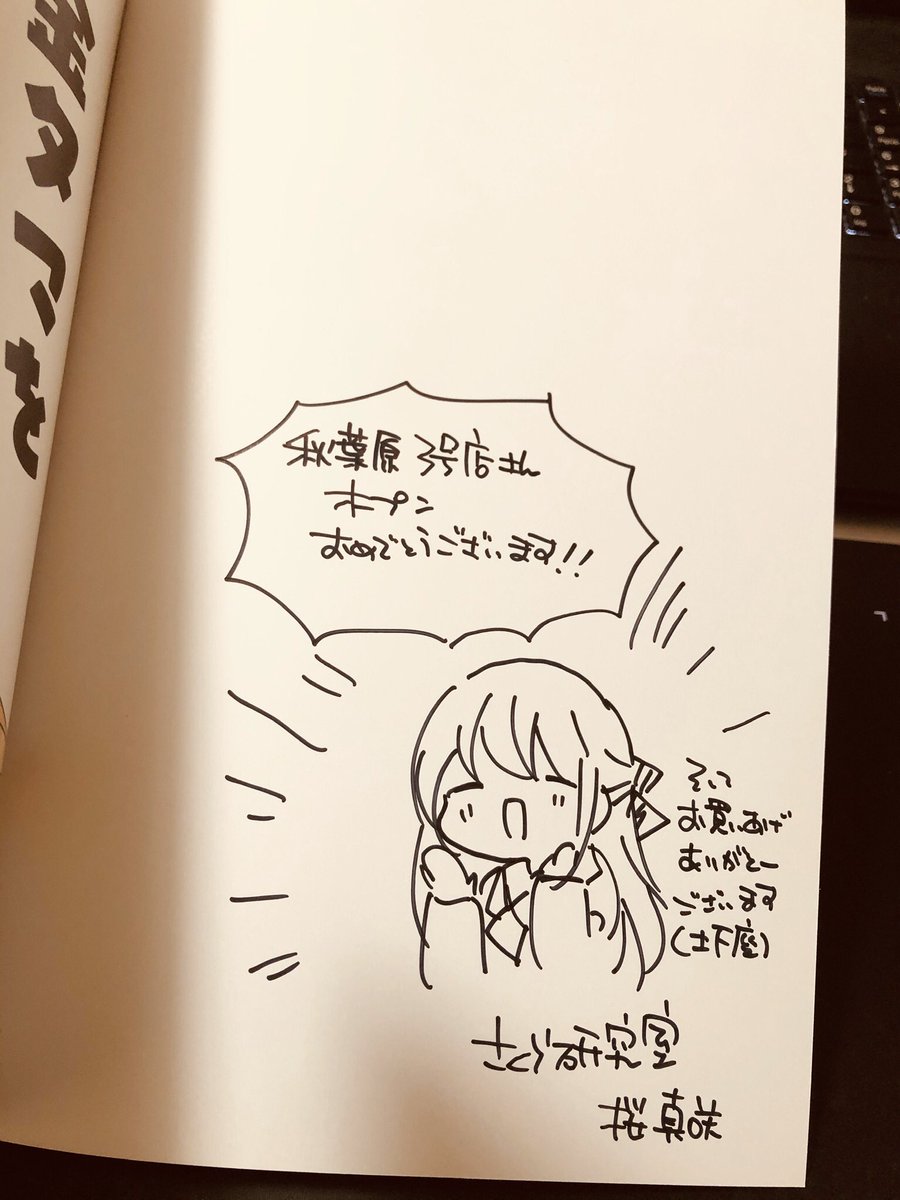 秋葉原 3号店さん
オープン
おめでとうございます!!
そして
お買いあげ
ありがとー
ございます
(土下座)
さくら研究室
桜真咲